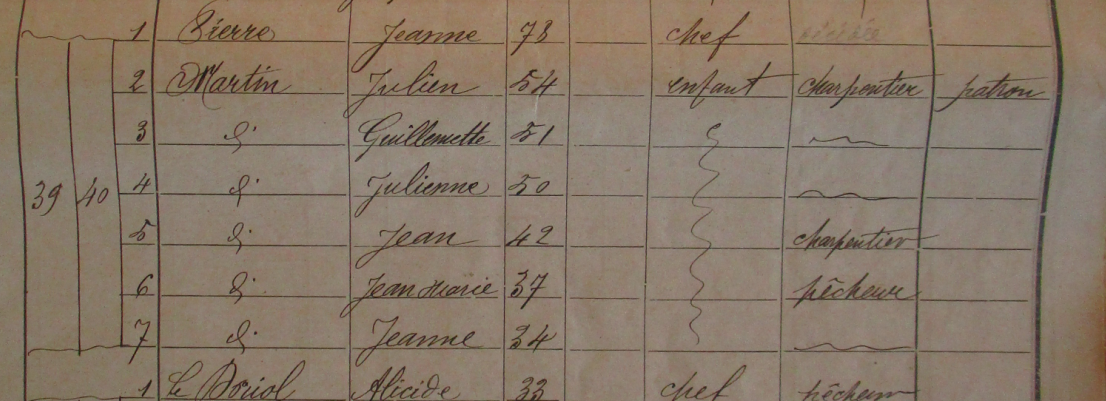 1 Pierre Jeanne 78 chef
2 Martin Julien 54 enfant charpentier patron
3 d° Guillemette 51
39 40 4 d° Julienne 50
5 d° Jean 42 charpentier
6 d° Jean Marie 37 pêcheur
7 d° Jeanne 34
1 Le Alicide 33 chef pêcheur